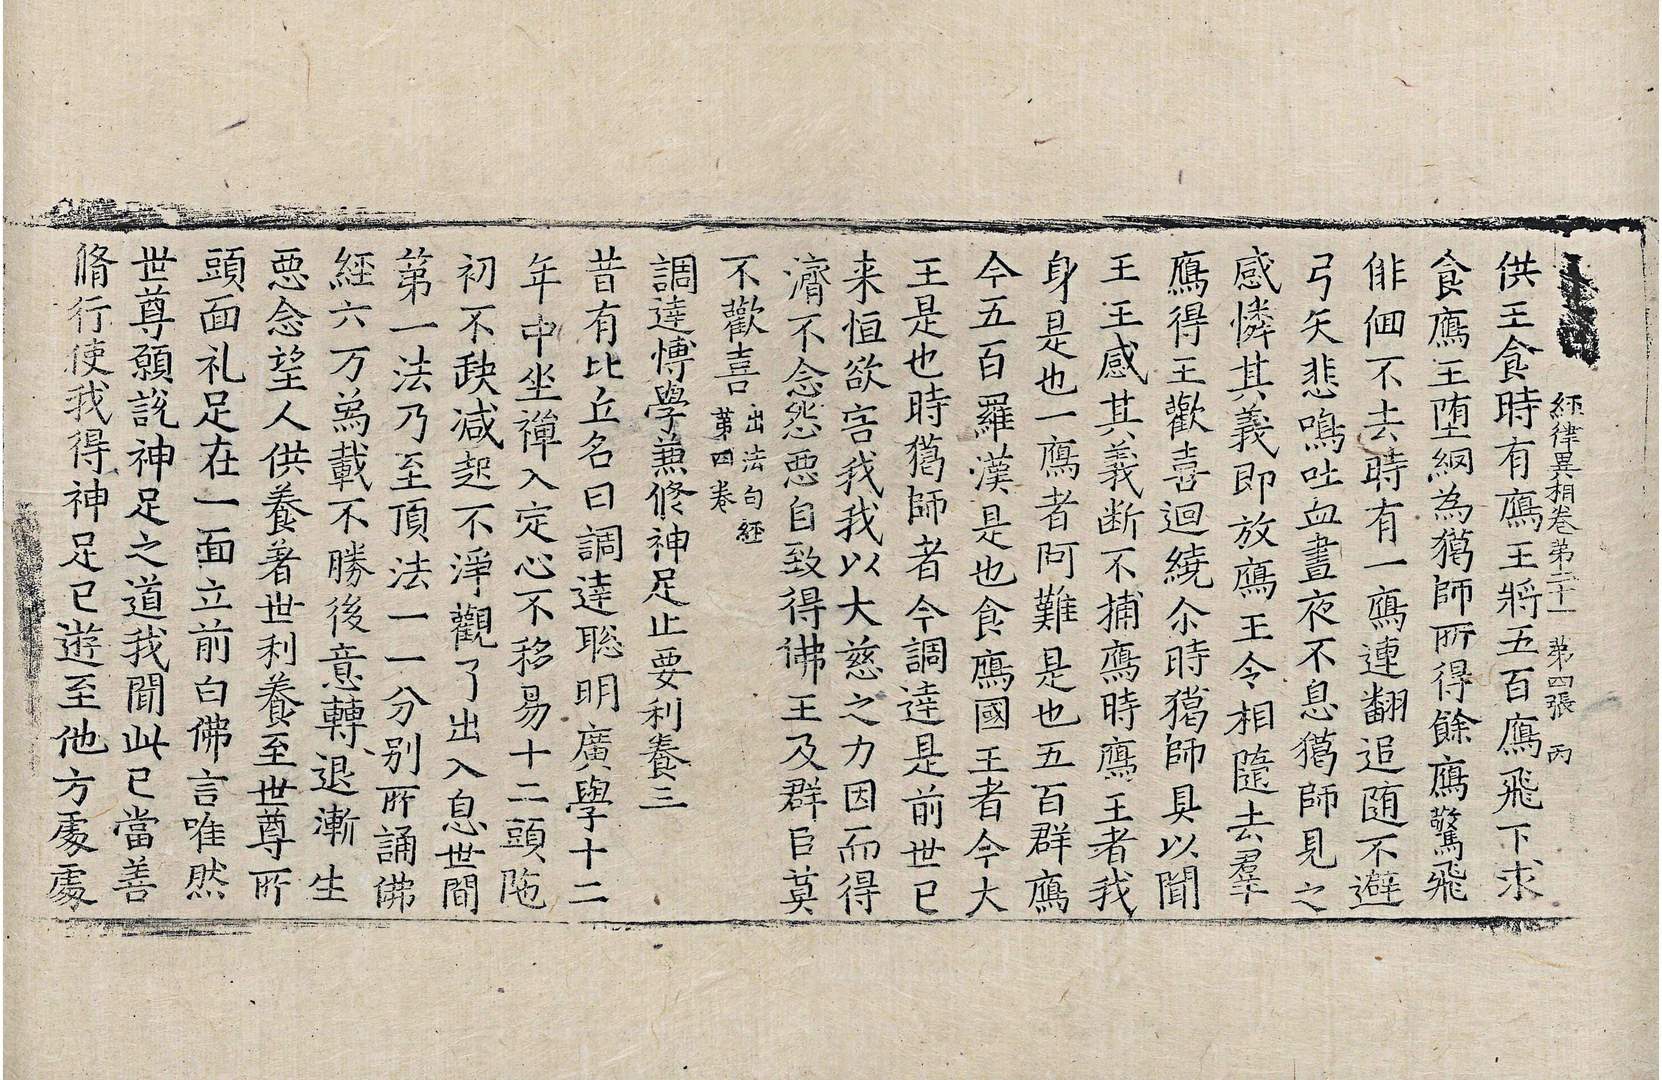 經律異相卷第二十一 第四張 丙
供王食時有鴈王將五百鴈飛下求
食鴈王堕網為獦師所得餘鴈驚飛
俳佪不去時有一鴈連翻追随不避
弓矢悲鳴吐血晝夜不息獦師見之
感憐其義即放鴈王令相隨去羣
鴈得王歡喜迴繞尒時獦師具以聞
王王感其義断不捕鴈時鴈王者我
身是也一鴈者阿難是也五百群鴈
今五百羅漢是也食鴈國王者今大
王是也時獦師者今調達是前世已
来恒欲害我我以大慈之力因而得
濟不念怨惡自致得佛王及群臣莫
不歡喜 出法句經
第四卷
調達博學兼修神足止要利養三
昔有比丘名曰調達聡明廣學十二
年中坐禪入定心不移易十二頭陁
初不缺减起不淨觀了出入息世間
第一法乃至頂法一一分別所誦佛
經六万為載不勝後意轉退漸生
惡念望人供養著世利養至世尊所
頭面礼足在一面立前白佛言唯然
世尊願說神足之道我聞此已當善
脩行使我得神足已遊至他方處處